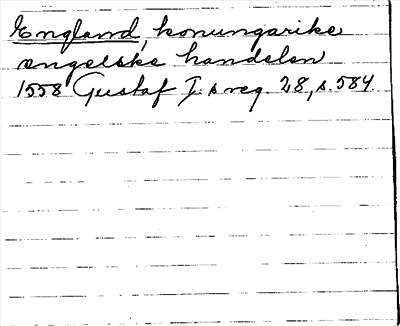 England, konungarike
ængelske handelen
1558 Gustaf I:s reg. 28, s. 584.